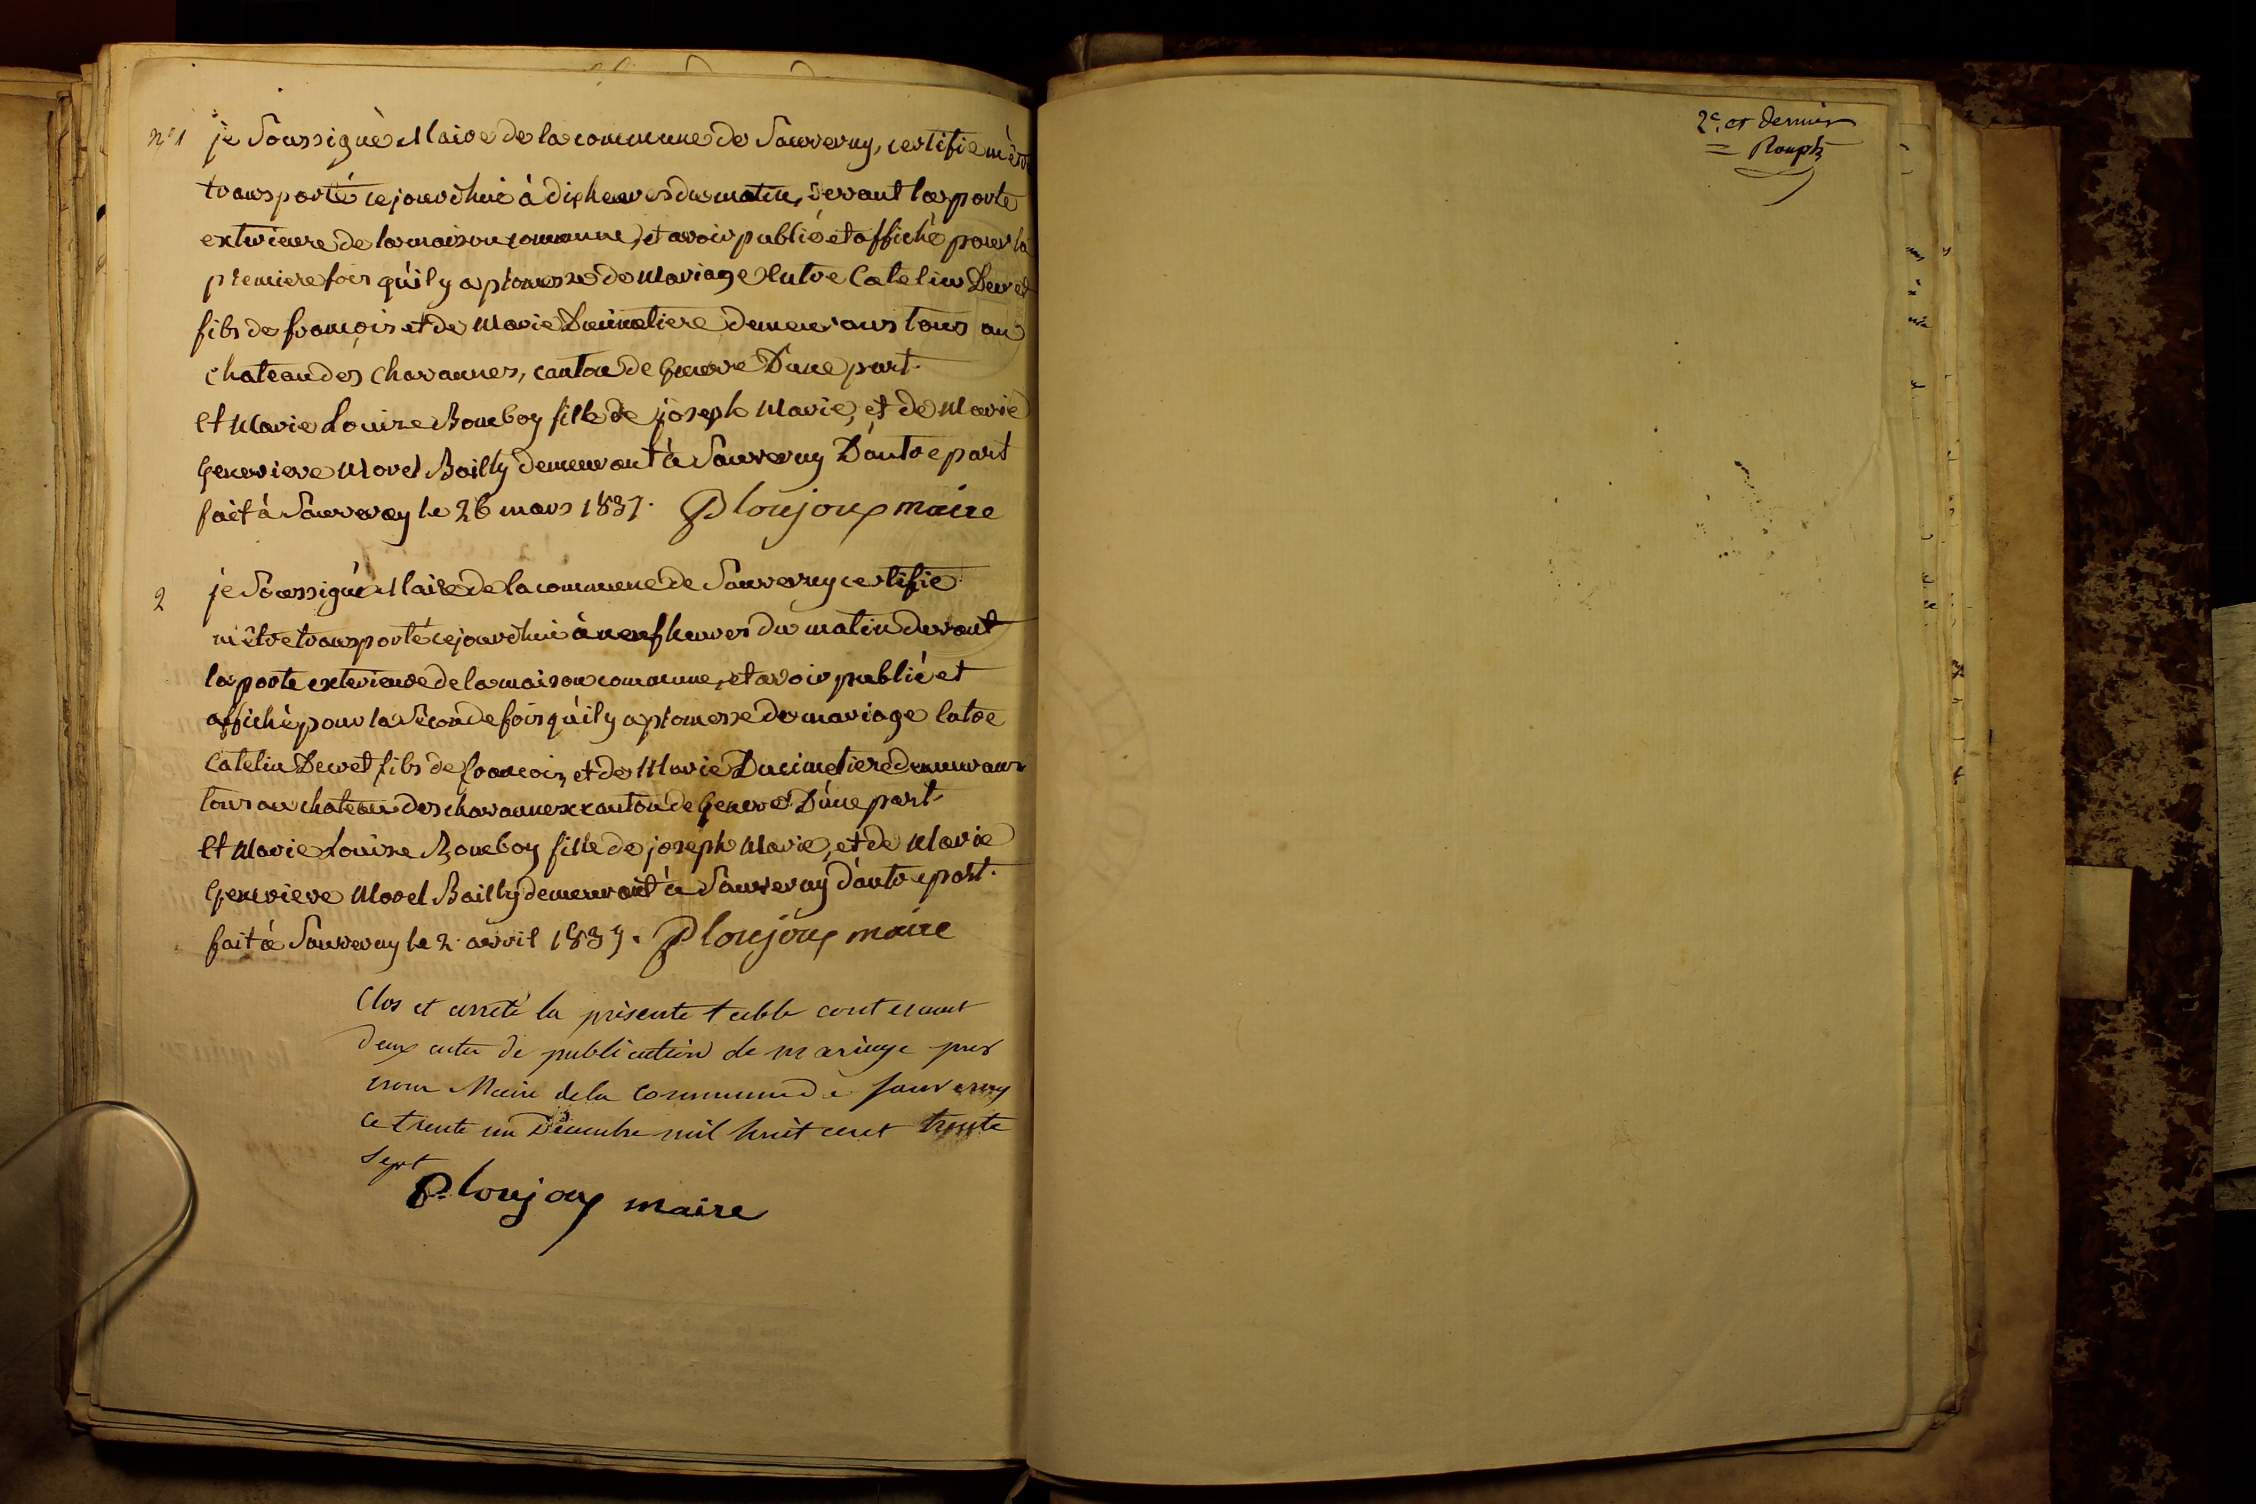 nº 1 je Soussigné Maire de la commune de Sauverny, certifie m'être
transporté ce jourdhui à dix heures du matin, devant la porte
exterieure de la maison commune, et avoir publié et affiché pour la
premiere fois qu'il y a promesse de Mariage Entre Catelin
fils de françois et de Marie Ducimetiere demeurans tous au
chateau des chavannes, canton de Geneve D'une part.
Et Marie Louise Bouboy fille de joseph Marie, et de Marie
Genevieve Morel Bailly demeurant à Sauverny D'autre part
fait à Sauverny le 26 mars 1837. P Loujoux maire
2 je Soussigné Maire de la commune de Sauverny certifie
m'être transporté ce jourdhui à neuf heures du matin devant
la porte exterieure de la maison commune, et avoir publié et
affiché pour la Seconde fois qu'il y a promesse de mariage Entre
Catelin fils de françois, et de Marie Ducimetiere demeurans
tous au chateau des chavannes canton de Geneve D'une part.
Et Marie Louise Bouboy fille de joseph Marie, et de Marie
Genevieve Morel Bailly demeurant à Sauverny d'autre part.
fait à Sauverny le 2 avril 1837. P Loujoux maire
Clos et arreté la présente table contenant
deux actes de publication de mariage par
nous Maire de la Commune de Sauverny
ce trente un Décembre mil huit cent trente
Sept
P. Loujoux maire
2e. et dernier